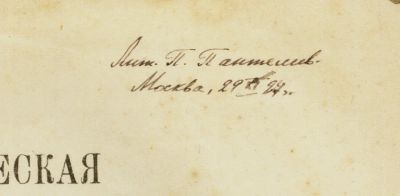 Лит. П. Пантелив.
Москва, 29 XI 94 г.
ЕСКАЯ